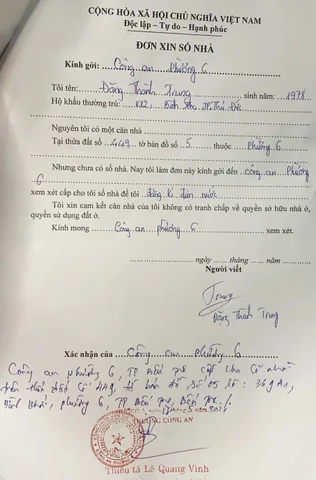 CỘNG HÒA XÃ HỘI CHỦ NGHĨA VIỆT NAM
Độc lập - Tự do - Hạnh phúc
ĐƠN XIN SỐ NHÀ
Kính gởi: Công an phường 6
Tôi tên: Đặng Thành Trung, sinh năm: 1978
Hộ khẩu thường trú: TP. Thủ Đức
Nguyên tôi có một căn nhà
Tại thửa đất số 449 tờ bản đồ số 5 thuộc Phường 6
Nhưng chưa có số nhà. Nay tôi làm đơn này kính gởi đến công an Phường
6
xem xét cấp cho số nhà để tôi đăng kí điện nước
Tôi xin cam kết căn nhà của tôi không có tranh chấp về quyền sở hữu nhà ở,
quyền sử dụng đất ở.
Kính mong Công an phường 6 xem xét.
ngày tháng năm
Người viết
Trung
Đặng Thành Trung
Xác nhận của Công an phường 6
Công an phường 6, TP Bến Tre cấp cho số nhà
trên thửa đất số 449, tờ bản đồ số 05 là: 369A1,
Bình Khởi, phường 6, TP Bến Tre, Bến Tre./.
TRƯỞNG CÔNG AN
Thiếu tá Lê Quang Vinh